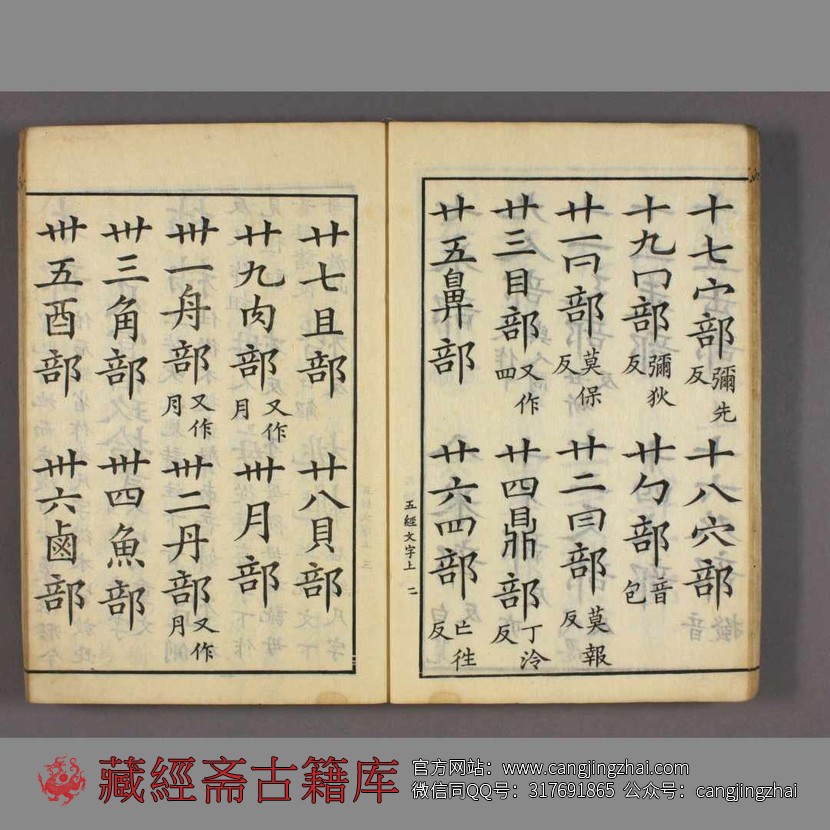 十七宀部彌先反 十八穴部
十九冖部彌狄反 廿勹部音包
廿一冃部莫保反 廿二冃部莫報反
廿三目部又作罒 廿四鼎部丁泠反
廿五鼻部 廿六罒部亡徃反
五經文字上 二
廿七且部 廿八貝部
廿九肉部又作月 卅月部
卅一舟部又作月 卅二丹部又作月
卅三角部 卅四魚部
卅五酉部 卅六鹵部
藏經斋古籍库
官方网站：www.cangjingzhai.com
微信同QQ号：317691865 公众号：cangjingzhai